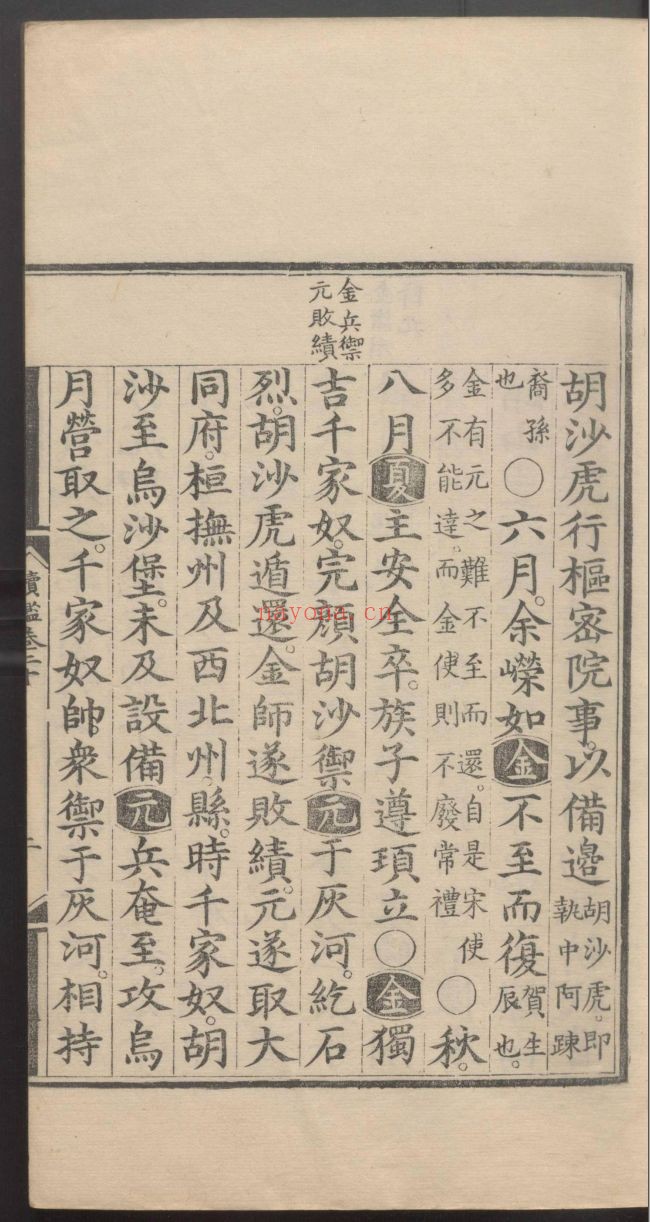 金兵禦
元敗績
胡沙虎行樞密院事。以備邊胡沙虎。即
執中阿踈
裔孫
也○六月。余嶸如金不至而復賀生
辰也。
金有元之難不至而還。自是宋使
多不能達。而金使則不廢常禮○秋。
八月夏主安全卒。族子遵頊立○金獨
吉千家奴。完顏胡沙禦元于灰河。紇石
烈。胡沙虎遁還。金師遂敗績。元遂取大
同府。桓撫州及西北州縣。時千家奴。胡
沙至烏沙堡。未及設備元兵奄至。攻烏
月營取之。千家奴帥。衆禦于灰河。相持
續鑑卷二十
nayona.cn